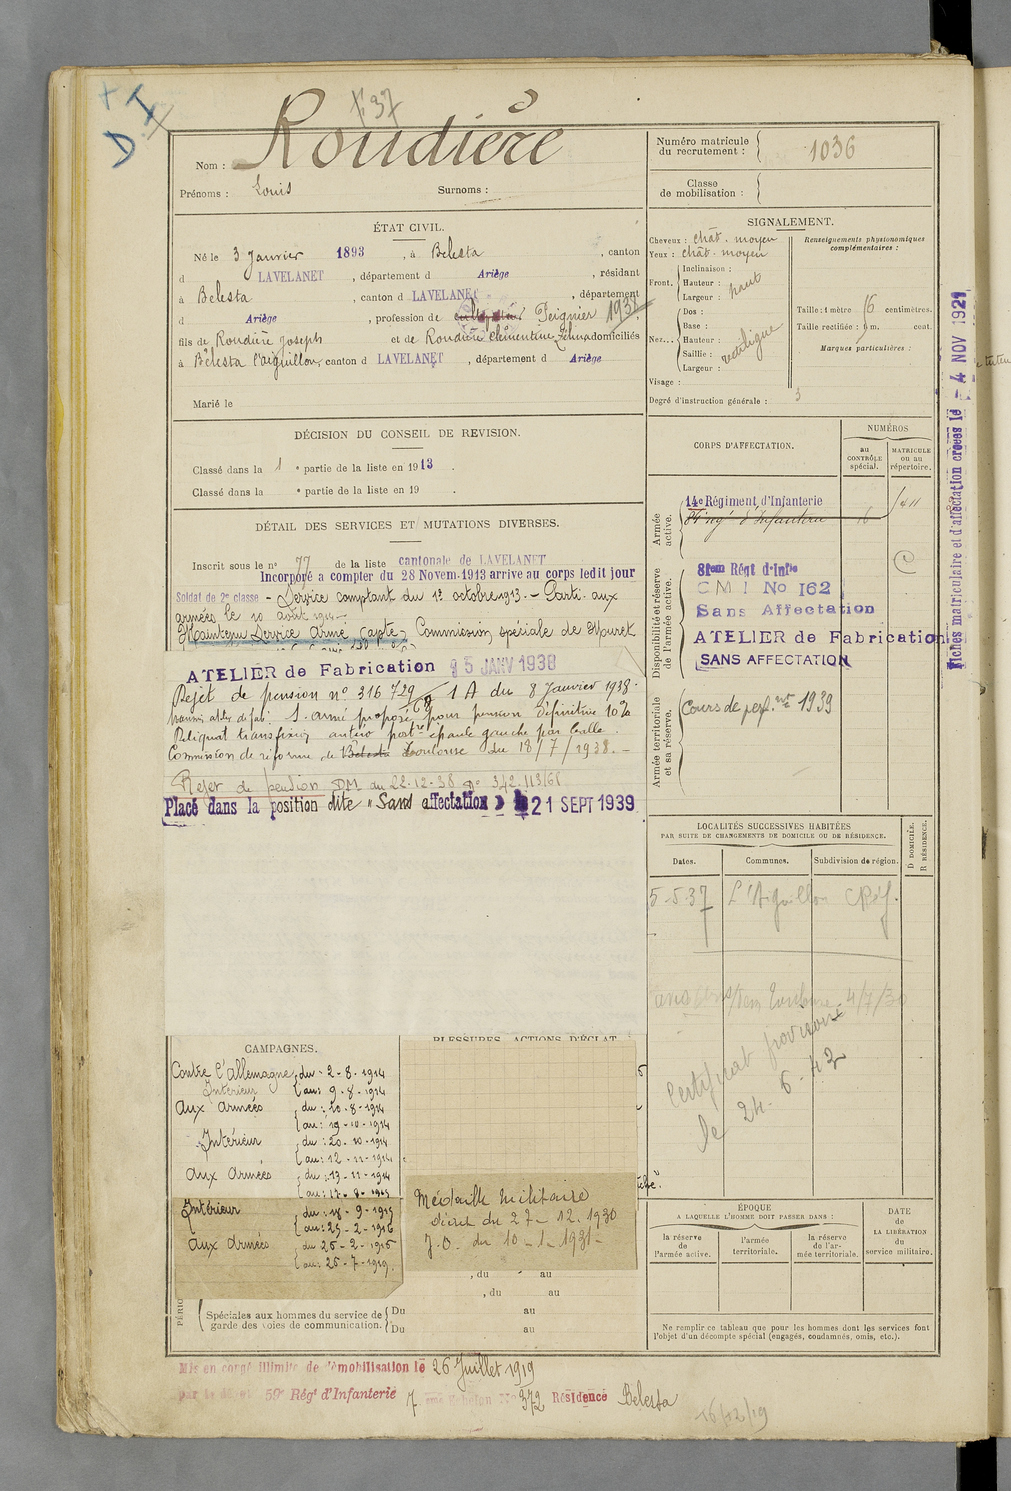 F 37
D I
Nom : Roudière
Prénoms : Louis Surnoms :
Numéro matricule du recrutement : 1036
Classe de mobilisation :
ÉTAT CIVIL.
Né le 3 Janvier 1893, à Bélesta, canton
d LAVELANET, département d Ariège, résidant
à Bélesta, canton d LAVELANET, département
d Ariège, profession de Peignier 1938
fils de Roudière Joseph et de Roudière Clémentine, Zelina domiciliés
à Bélesta l'aiguillon, canton d LAVELANET, département d Ariège
Marié le
SIGNALEMENT.
Cheveux : chât. moyen
Yeux : chât. moyen
Front. Inclinaison :
Hauteur : haut
Largeur :
Nez... Dos :
Base :
Hauteur : rectiligne
Saillie :
Largeur :
Visage :
Degré d'instruction générale : 3
Renseignements physionomiques complémentaires :
Taille : 1 mètre 6 centimètres.
Taille rectifiée : m. cent.
Marques particulières :
DÉCISION DU CONSEIL DE REVISION.
Classé dans la 1 e partie de la liste en 1913.
Classé dans la e partie de la liste en 19 .
DÉTAIL DES SERVICES ET MUTATIONS DIVERSES.
Inscrit sous le n° 77 de la liste cantonale de LAVELANET
Incorporé a compter du 28 Novem. 1913 arrive au corps ledit jour
Soldat de 2e classe - Service comptant du 1er octobre 1913. - Parti aux
armées le 10 août 1914
Maintenu Service Armé (apte) Commission spéciale de
ATELIER de Fabrication 25 JANV 1938
Rejet de pension n° 316 729 1 A du 8 Janvier 1938.
S. armé proposé pour pension définitive 10%
Reliquat transfixion antéro postre épaule gauche par balle.
Commission de réforme de Bélesta Toulouse du 18/7/1938. -
Rejet de pension DM du 22-12-38 n° 342.113/68
Placé dans la position dite "Sans affectation" 21 SEPT 1939
CORPS D'AFFECTATION.
NUMÉROS
au CONTRÔLE spécial.
MATRICULE ou au répertoire.
Armée active.
14e Régiment d'Infanterie
d'Infanterie 16
1411
Disponibilité et réserve de l'armée active.
81em Régt d'Infie
C M I No 162
Sans Affectation
ATELIER de Fabrication
SANS AFFECTATION
Armée territoriale et sa réserve.
Cours de perf.nt 1939
Fiches matriculaire et d'affectation créées le - 4 NOV 1921
LOCALITÉS SUCCESSIVES HABITÉES
PAR SUITE DE CHANGEMENTS DE DOMICILE OU DE RÉSIDENCE.
Dates. Communes. Subdivision de région. D DOMICILE. R RÉSIDENCE.
5-5-37 L'Aiguillon
4/7/38
Certificat provisoire
le 24-6-42
CAMPAGNES.
Contre l'Allemagne du : 2-8-1914
Intérieur au : 9-8-1914
aux armées du : 10-8-1914
au : 19-10-1914
Intérieur du : 20-10-1914
au : 12-11-1914
aux armées du : 13-11-1914
au : 17-8-1915
Intérieur du : 18-9-1915
au : 25-2-1916
aux armées du 26-2-1916
au : 26-7-1919.
BLESSURES, ACTIONS D'ÉCLAT
Médaille militaire
décret du 27-12.1930
J.O. du 10-1-1931-
, du au
, du au
Spéciales aux hommes du service de garde des voies de communication. Du au
Du au
ÉPOQUE
A LAQUELLE L'HOMME DOIT PASSER DANS :
la réserve de l'armée active.
l'armée territoriale.
la réserve de l'armée territoriale.
DATE de LA LIBÉRATION du service militaire.
Ne remplir ce tableau que pour les hommes dont les services font
l'objet d'un décompte spécial (engagés, condamnés, omis, etc.).
Mis en congé illimité de démobilisation le 26 Juillet 1919
par le dépôt 59e Régt d'Infanterie 7 eme Echelon N° 372 Résidence Bélesta